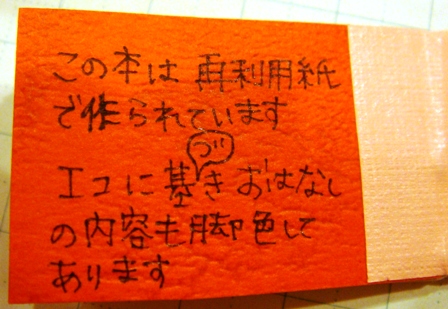 この本は再利用紙
で作られています
エコに基づきおはなし
の内容も脚色して
あります